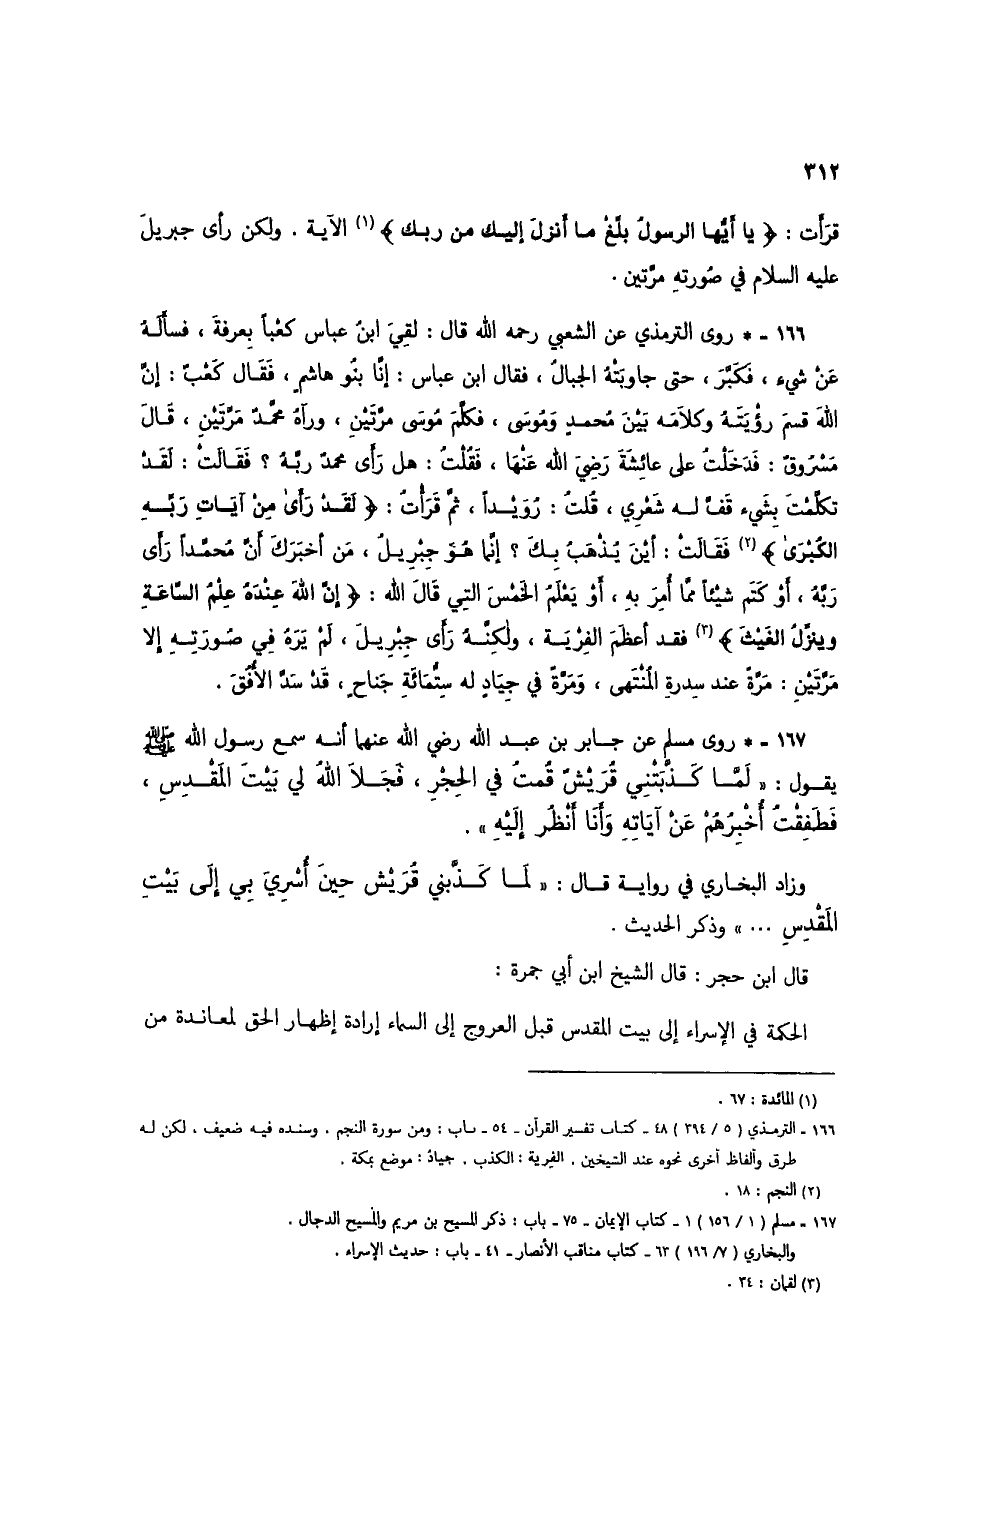 ٣١٢
قرَأَت : ﴿ يا أَيُّها الرسولُ بلِّغْ مـا أَنزلَ إليـك من ربـك ﴾ (١) الآيـة . ولكن رأى جبريلَ
عليه السلام في صُورتهِ مرَّتين .
١٦٦ - * روى الترمذي عن الشعبي رحمه الله قال : لقيَ ابنُ عباس كعْباً بِعرفةَ ، فسأَلَـهُ
عَنْ شيء ، فَكَبَّرَ ، حتى جاوبَتْهُ الجبالُ ، فقال ابن عباس : إنَّا بنُو هاشمٍ ، فَقَـال كَعْبٌ : إنَّ
اللهَ قسمَ رؤْيَتَـهُ وكلاَمَه بَيْنَ مُحمـدٍ وَمُوسَى ، فكلَّمَ مُوسَى مرَّتَيْنِ ، ورآهُ محَّمـدٌ مَرَّتَيْنِ ، قَـالَ
مَسْرُوقٌ : فَدَخَلْتُ على عائشَةَ رَضِيَ الله عَنْهَا ، فَقُلْتُ : هل رَأَى محمدٌ ربَّـهُ ؟ فَقَـالَتْ : لَقَـدْ
تكلَّمْتَ بِشَيء قَفَّ لـه شَعْرِي ، قُلتُ : رُوَيْـداً ، ثمَّ قَرَأْتُ : ﴿ لَقَـدْ رَأَىٰ مِنْ آيَـاتِ رَبِّــهِ
الكُبْرَىٰ ﴾ (٢) فَقَـالَتْ : أيْنَ يُـذْهَبُ بِـكَ ؟ إنَّما هُـوَ جِبْرِيـلُ ، مَن أخبَرَكَ أنَّ مُحمَّـداً رَأَى
رَبَّهُ ، أَوْ كَتَم شيْئاً ممَّا أُمِرَ بهِ ، أَوْ يَعْلَمُ الخَمْسَ التِي قَالَ الله : ﴿ إنَّ اللهَ عِنْدَهُ عِلْمُ السَّاعَـةِ
وينزِّلُ الغَيْثَ ﴾ (٣) فقـد أعظَمَ الفِرْيَـة ، ولٰكِنَّــهُ رَأَى جِبْرِيـلَ ، لَمْ يَرَهُ فِي صُـورَتِــهِ إلا
مَرَّتَيْنِ : مَرَّةً عند سِدرةِ المُنْتَهى ، وَمَرَّةً في جِيَادٍ له سِتُّمائَةِ جَناحٍ ، قَدْ سَدَّ الأفُقَ .
١٦٧ - * روى مسلم عن جـابر بن عبـد الله رضي الله عنهما أنـه سمع رسـول الله ﷺ
يقـول : « لَمَّـا كَـذَّبَتْنِي قُرَيْشٌ قُمتُ في الحِجْرِ ، فَجَـلاَ اللهُ لي بَيْتَ المَقْـدِسِ ،
فَطَفِقْتُ أُخْبِرُهُمْ عَنْ آيَاتِهِ وَأَنَا أَنْظُر إلَيْهِ » .
وزاد البخـاري في روايـة قـال : « لَمـا كَـذَّبني قُرَيْش حِينَ أُسْرِيَ بِي إلَى بَيْتِ
المَقْدِسِ ... » وذكر الحديث .
قال ابن حجر : قال الشيخ ابن أبي جمرة :
الحكمة في الإسراء إلى بيت المقدس قبل العروج إلى السماء إرادة إظهـار الحق لمعـانـدة من
(١) المائدة : ٦٧ .
١٦٦ - الترمـذي ( ٥ / ٣٩٤ ) ٤٨ - كتـاب تفسير القرآن - ٥٤ - بـاب : ومن سورة النجم . وسنـده فيـه ضعيف ، لكن لـه
طرق وألفاظ أخرى نحوه عند الشيخين . الفِرية : الكذب . جيادٌ : موضع بمكة .
(٢) النجم : ١٨ .
١٦٧ - مسلم ( ١ / ١٥٦ ) ١ - كتاب الإيمان - ٧٥ - باب : ذكر المسيح بن مريم والمسيح الدجال .
والبخاري ( ٧/ ١٩٦ ) ٦٣ - كتاب مناقب الأنصار - ٤١ - باب : حديث الإسراء .
(٣) لقمان : ٣٤ .